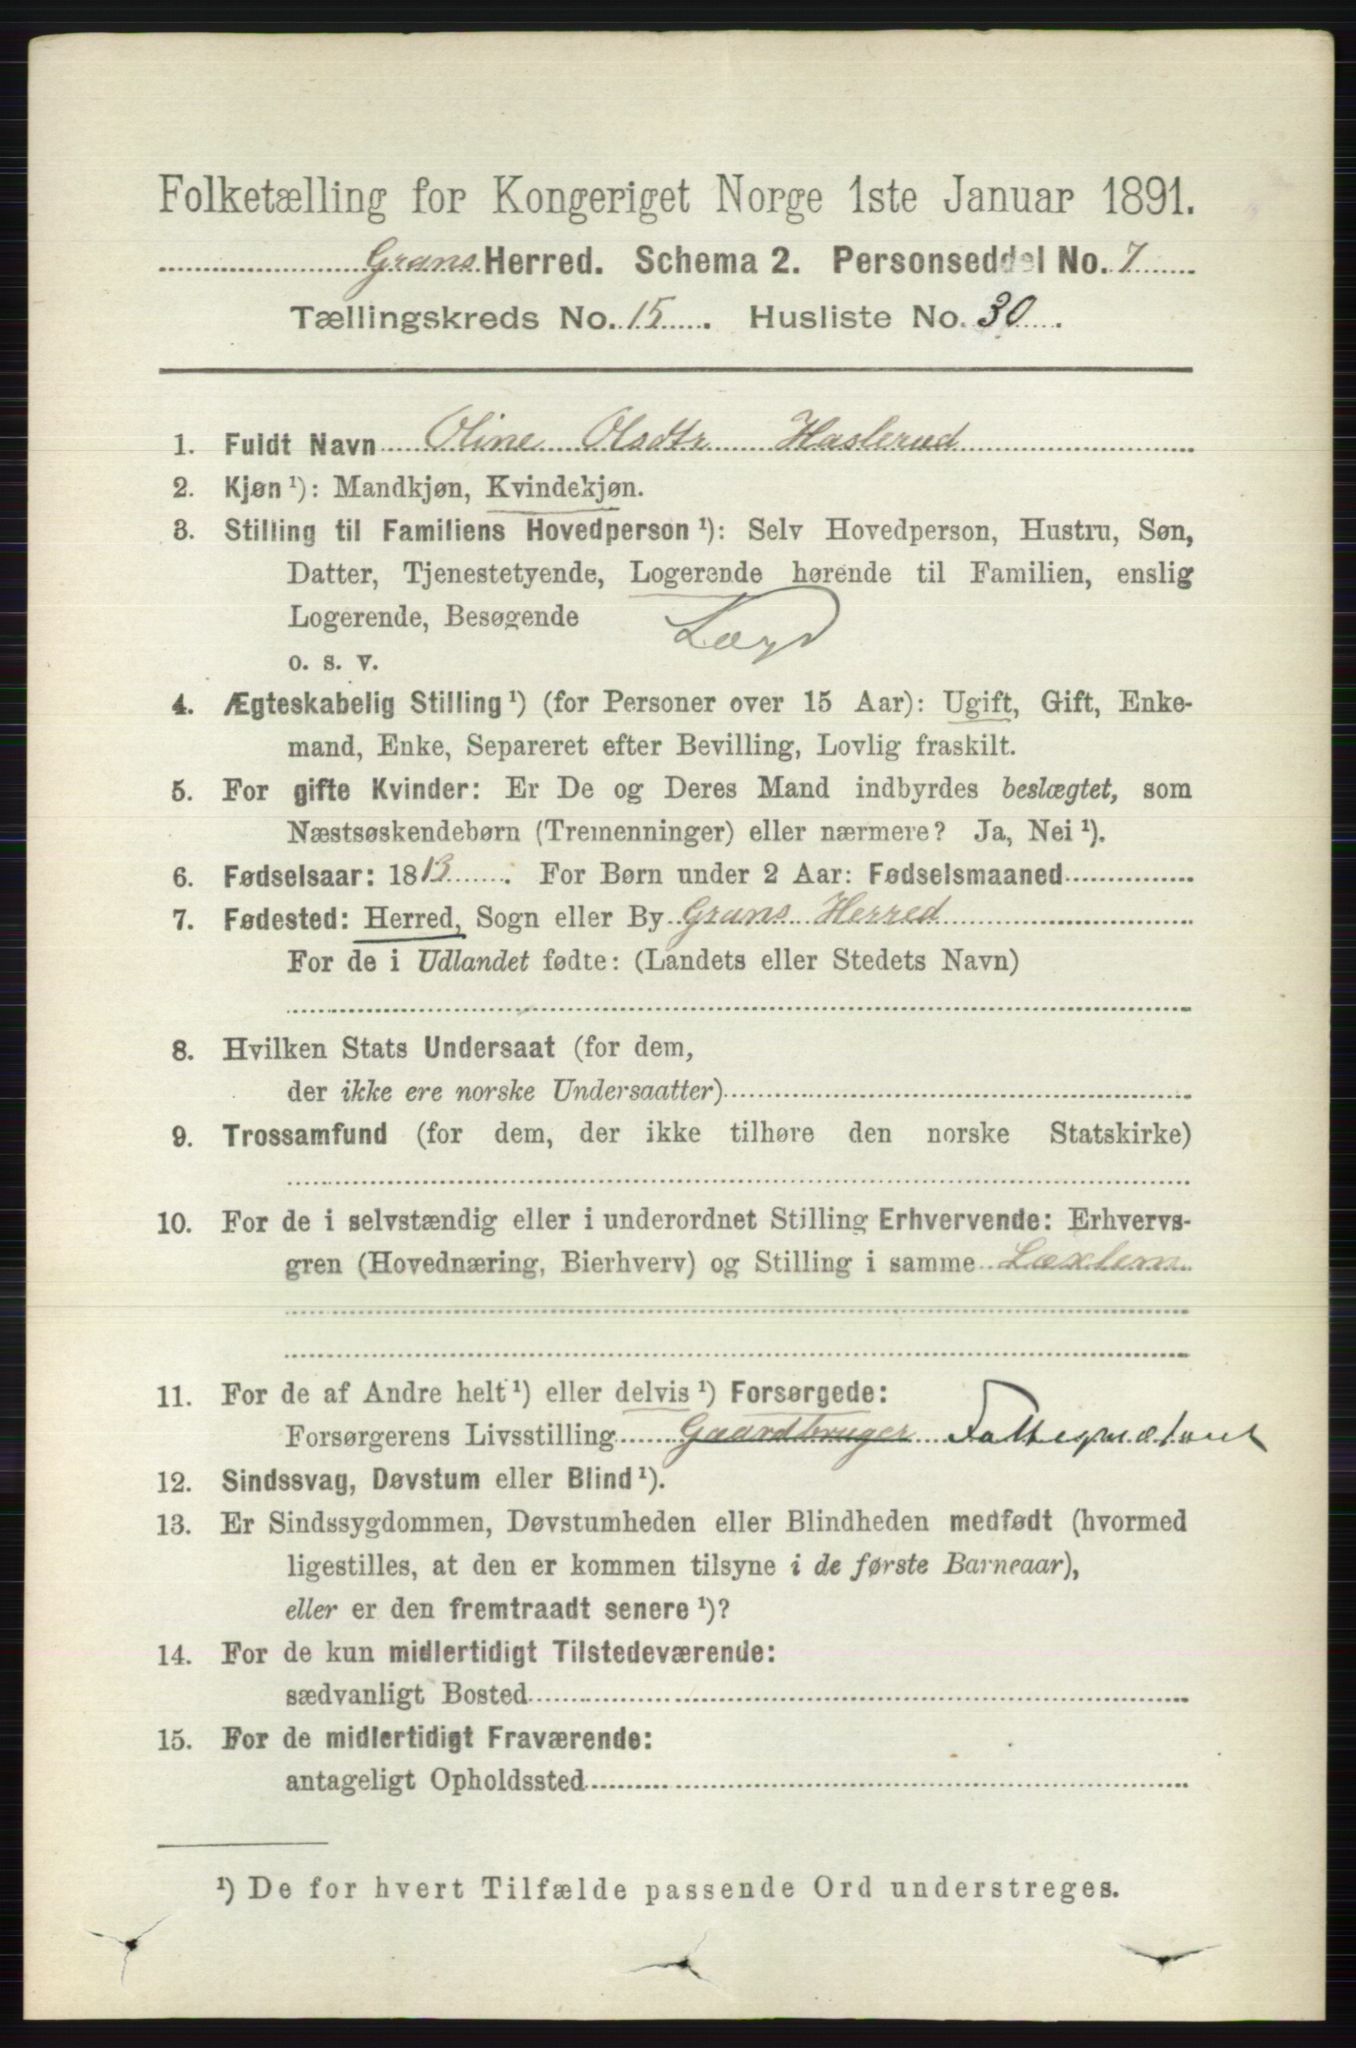 Folketælling for Kongeriget Norge 1ste Januar 1891.
Grans Herred. Schema 2. Personseddel No. 7
Tællingskreds No. 15. Husliste No. 30.
1. Fuldt Navn Oline Olsdtr Haslerud
2. Kjøn ¹): Mandkjøn, Kvindekjøn.
3. Stilling til Familiens Hovedperson ¹): Selv Hovedperson, Hustru, Søn,
Datter, Tjenestetyende, Logerende hørende til Familien, enslig
Logerende, Besøgende Lægd
o. s. v.
4. Ægteskabelig Stilling ¹) (for Personer over 15 Aar): Ugift, Gift, Enke-
mand, Enke, Separeret efter Bevilling, Lovlig fraskilt.
5. For gifte Kvinder: Er De og Deres Mand indbyrdes beslægtet, som
Næstsøskendebørn (Tremenninger) eller nærmere? Ja, Nei ¹).
6. Fødselsaar: 1813. For Børn under 2 Aar: Fødselsmaaned
7. Fødested: Herred, Sogn eller By Grans Herred
For de i Udlandet fødte: (Landets eller Stedets Navn)
8. Hvilken Stats Undersaat (for dem,
der ikke ere norske Undersaatter)
9. Trossamfund (for dem, der ikke tilhøre den norske Statskirke)
10. For de i selvstændig eller i underordnet Stilling Erhvervende: Erhvervs-
gren (Hovednæring, Bierhverv) og Stilling i samme Læxlem
11. For de af Andre helt ¹) eller delvis ¹) Forsørgede:
Forsørgerens Livsstilling Gaardbruger
12. Sindssvag, Døvstum eller Blind ¹).
13. Er Sindssygdommen, Døvstumheden eller Blindheden medfødt (hvormed
ligestilles, at den er kommen tilsyne i de første Barneaar),
eller er den fremtraadt senere ¹)?
14. For de kun midlertidigt Tilstedeværende:
sædvanligt Bosted
15. For de midlertidigt Fraværende:
antageligt Opholdssted
¹) De for hvert Tilfælde passende Ord understreges.